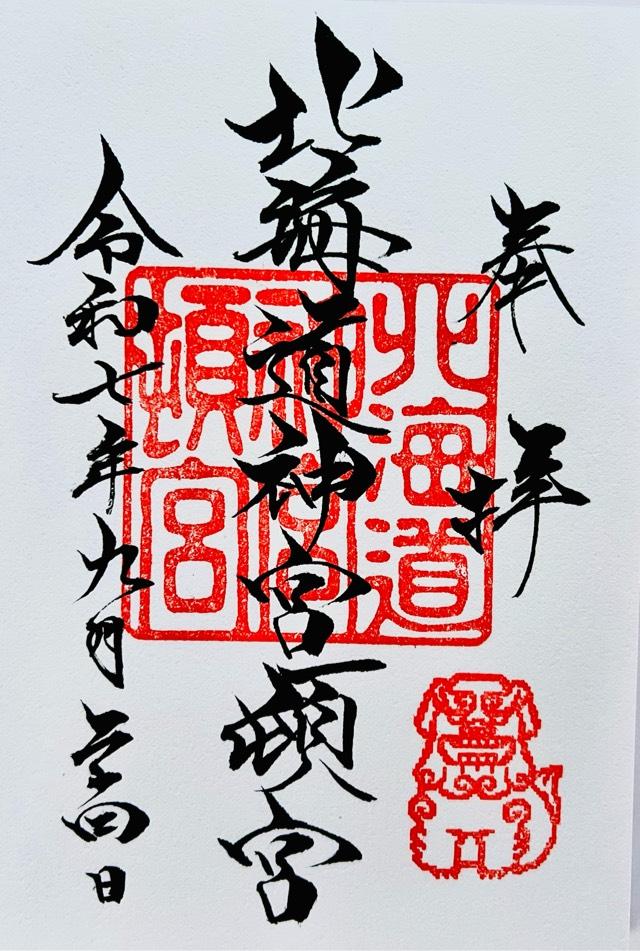 奉拝
北海道神宮頓宮
令和七年九月二十四日
北海道
神宮
頓宮